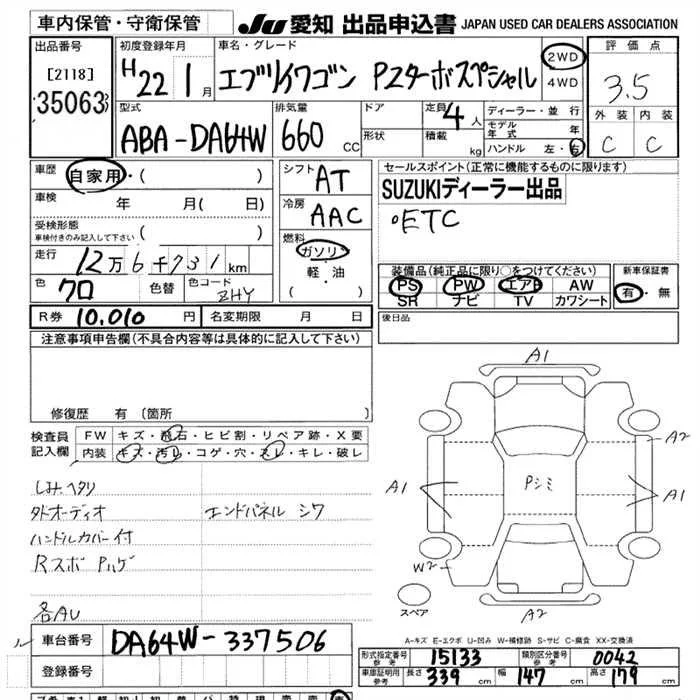 車内保管・守衛保管 JU 愛知 出品申込書 JAPAN USED CAR DEALERS ASSOCIATION
出品番号 初度登録年月 車名・グレード 評価点
[2118] H22 1月 エブリイワゴン PZターボスペシャル 2WD 3.5
35063 4WD
型式 排気量 ドア 定員 4人 ディーラー・並行 外装 内装
ABA-DA64W 660 CC 形状 積載 kg モデル年式 年 C C
ハンドル 左・右
車歴 自家用・( ) シフト AT セールスポイント(正常に機能するものに限ります)
車検 年 月( 日) 冷房 AAC SUZUKIディーラー出品
受検形態 ( ) °ETC
車検付きのみ記入して下さい
走行 12万6千731km 燃料 ガソリン
軽・油 装備品(純正品に限り○をつけてください) 新車保証書
色 クロ 色替 色コード ZHY ( ) PS PW エアB AW 有・無
SR ナビ TV カワシート
R券 10,010 円 名変期限 月 日 後日品
注意事項申告欄(不具合内容等は具体的に記入して下さい)
修復歴 有 [箇所 ]
検査員 FW キズ・飛石・ヒビ割・リペア跡・X要
記入欄 内装 キズ・汚レ・コゲ・穴・スレ・キレ・破レ
シミ.ヘタリ
外オーディオ エンドパネル シワ
ハンドルカバー付
Rスボ ハゲ
各AU
A1
A2
A1 Pシミ A1
W2
スペア A2
A-キズ E-エクボ U-凹み W-補修跡 S-サビ C-腐食 XX-交換済
車台番号 DA64W-337506
登録番号
形式指定番号 参考 15133 類別区分番号 参考 0042
車庫証明用 参考 長さ 339 cm 幅 147 cm 高さ 179 cm